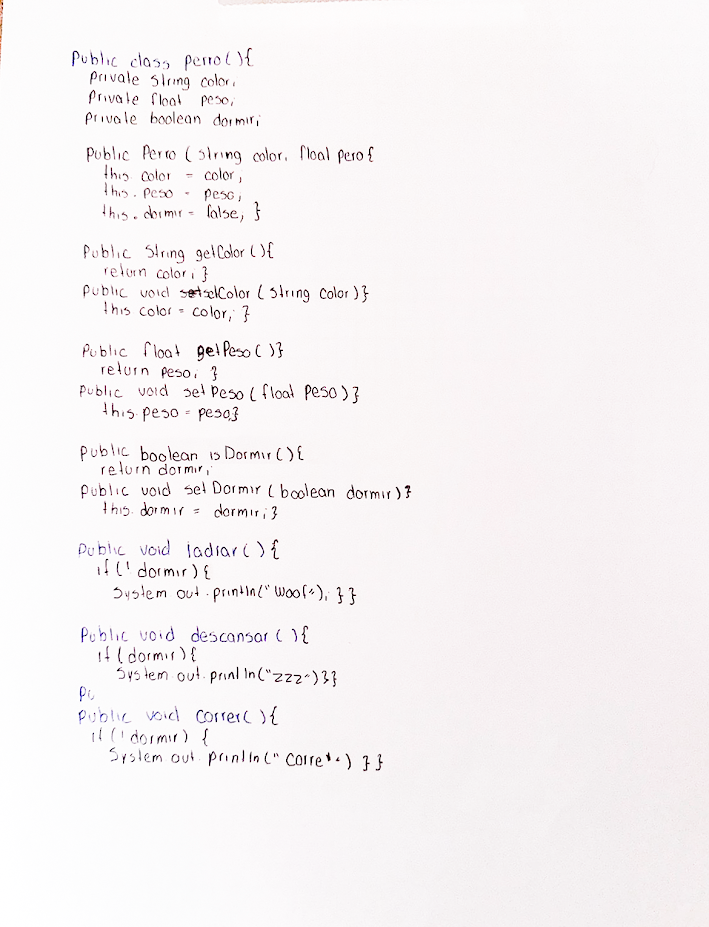 Public class perro(){
Private String color;
Private float peso;
Private boolean dormir;
Public Perro (String color, float pero{
this color = color;
this. peso = peso;
this. dormir = false; }
Public String getColor (){
return color; }
Public void setColor (String color)}
this color = color; }
Public float getPeso ()}
return peso; }
Public void set Peso (float peso)}
this. peso = peso;}
Public boolean is Dormir (){
return dormir;
Public void set Dormir (boolean dormir)}
this. dormir = dormir; }
Public void ladrar (){
if (! dormir){
System out. println("Woof"); }}
Public void descansar (){
if (dormir){
System. out. println("zzz")}}
Pu
Public void correr(){
if (! dormir) {
System. out. println(" Corre") }}